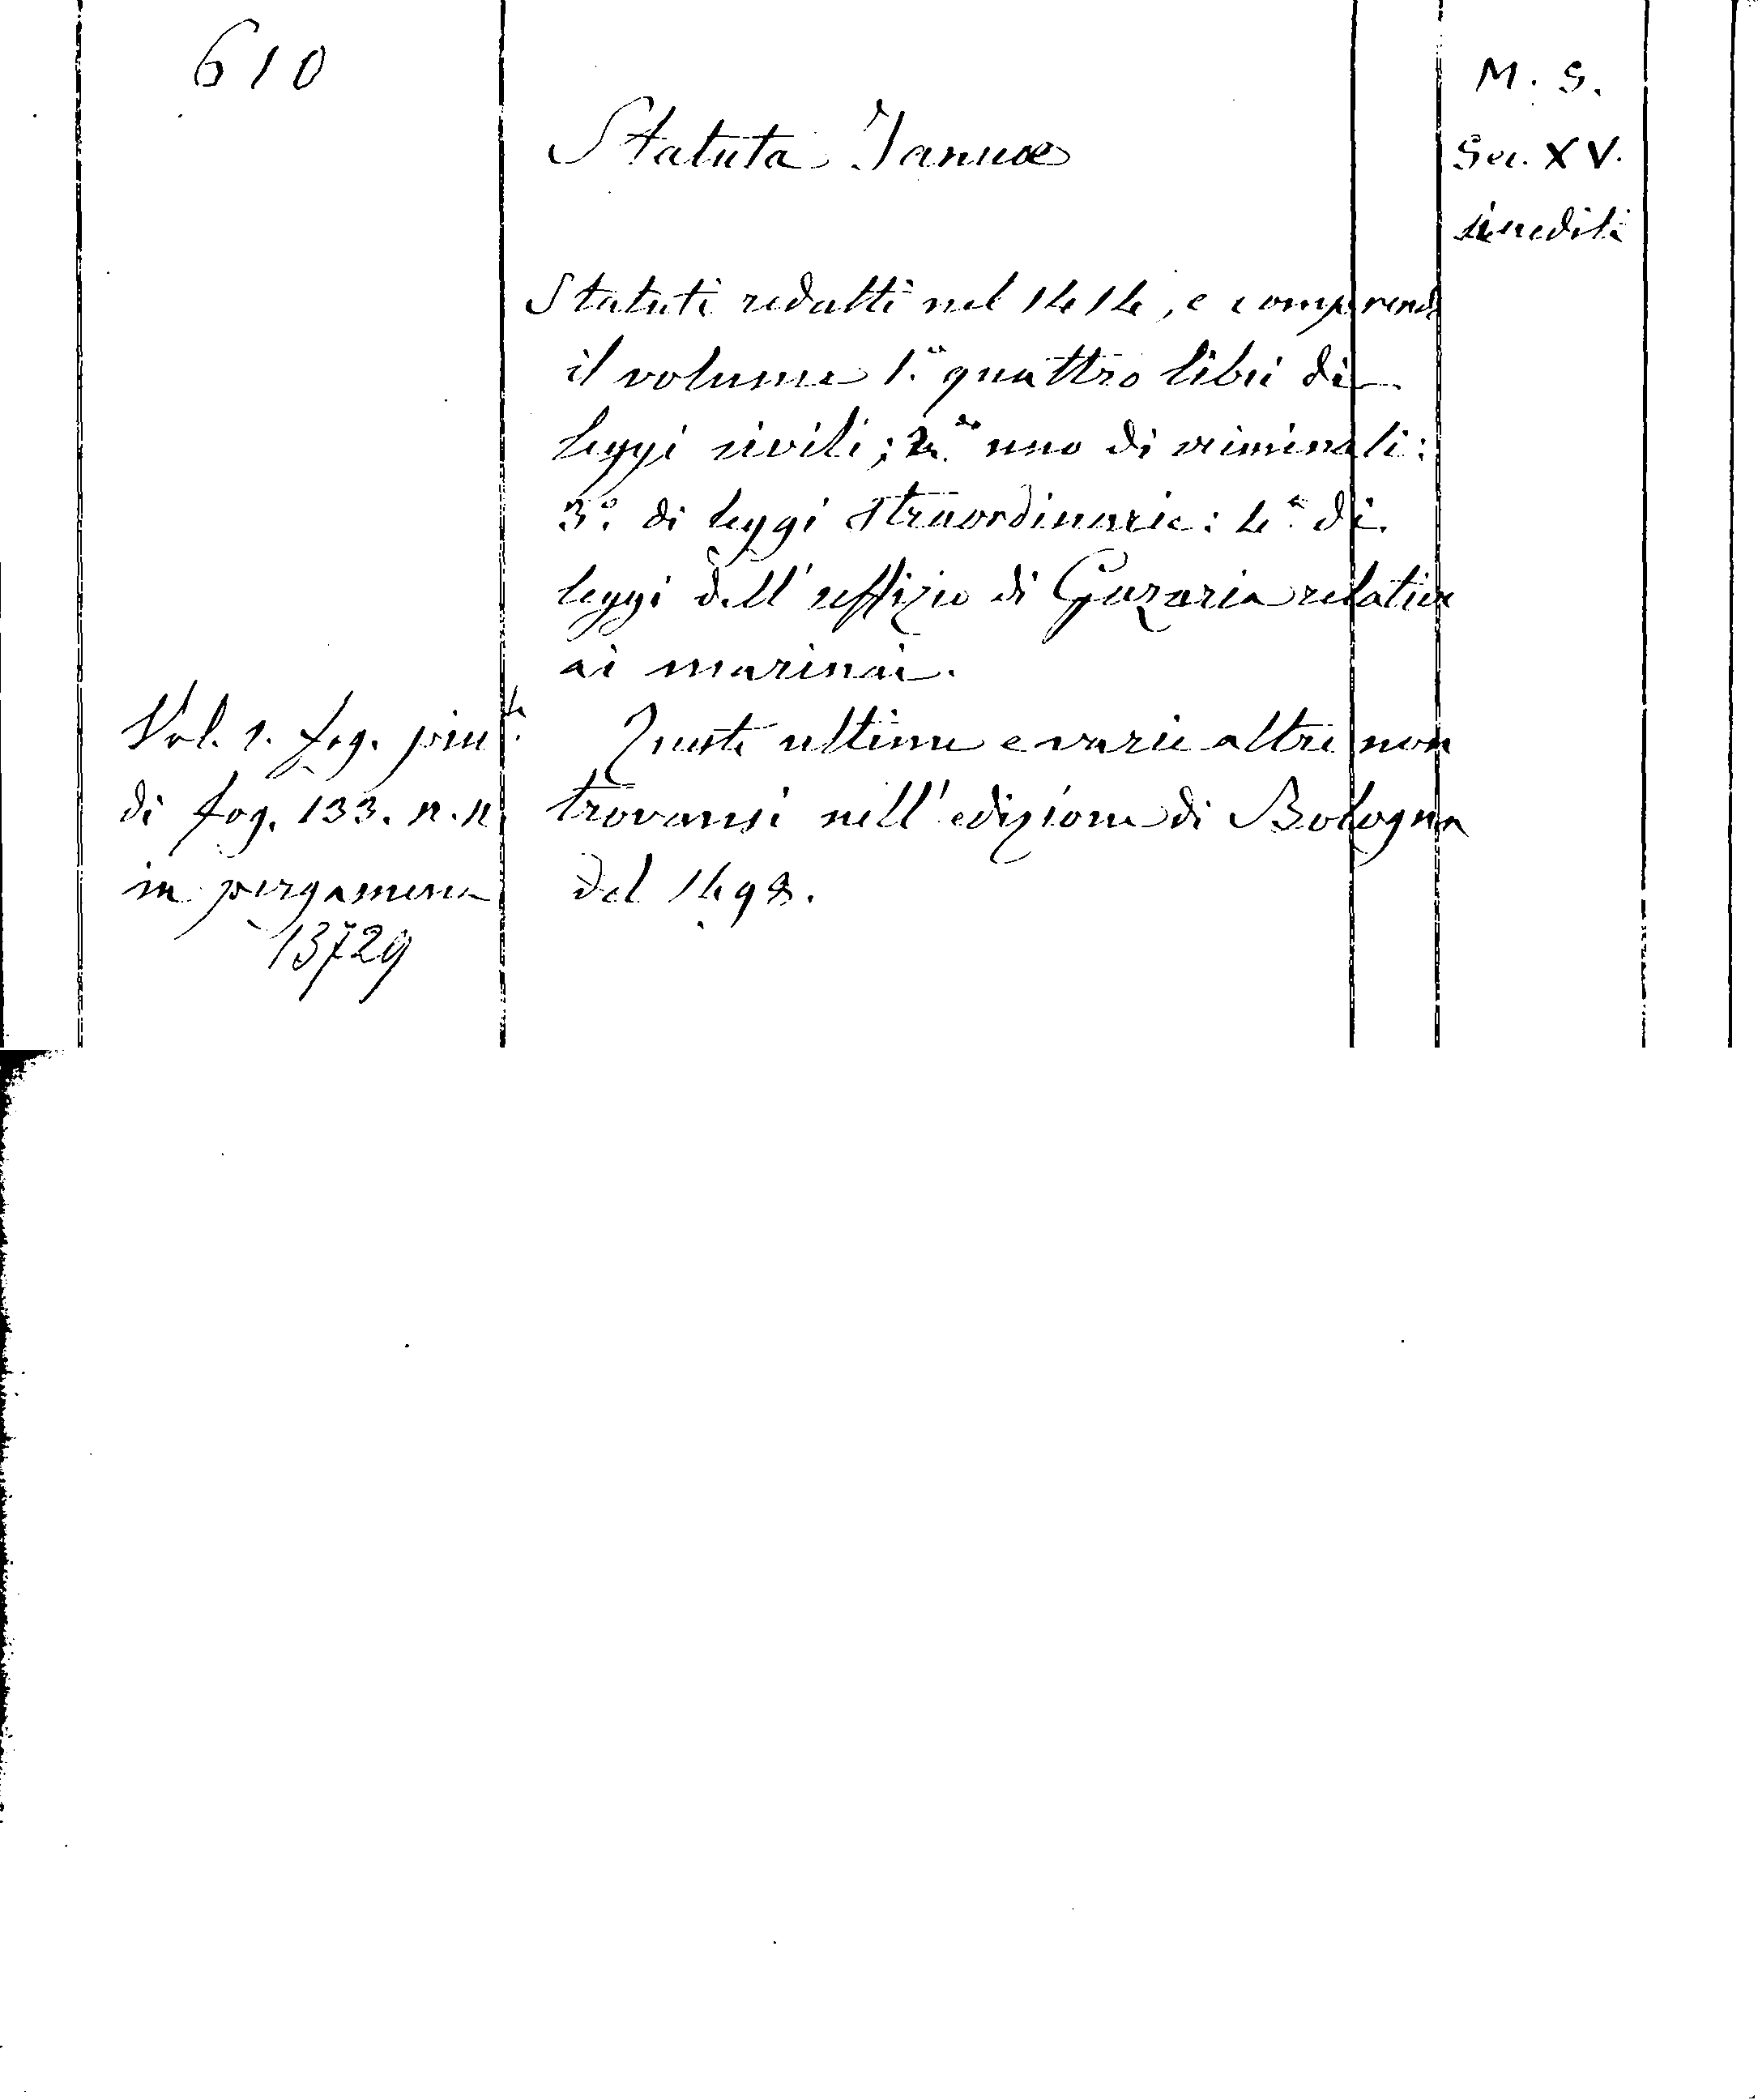 610
Statuta Januae
M. S.
Sec. XV.
inediti
Statuti redatti nel 1414, e comprende
il volume 1.° quattro libri di
leggi civili; 2.° uno di criminali:
3.° di leggi straordinarie: 4.° di
leggi dell'uffizio di Gazaria relative
ai marinai.
Queste ultime e varie altre non
trovansi nell'edizione di Bologna
del 1498.
Vol. 1. fog. pic.
di fog. 133. n. n.
in pergamena
13729